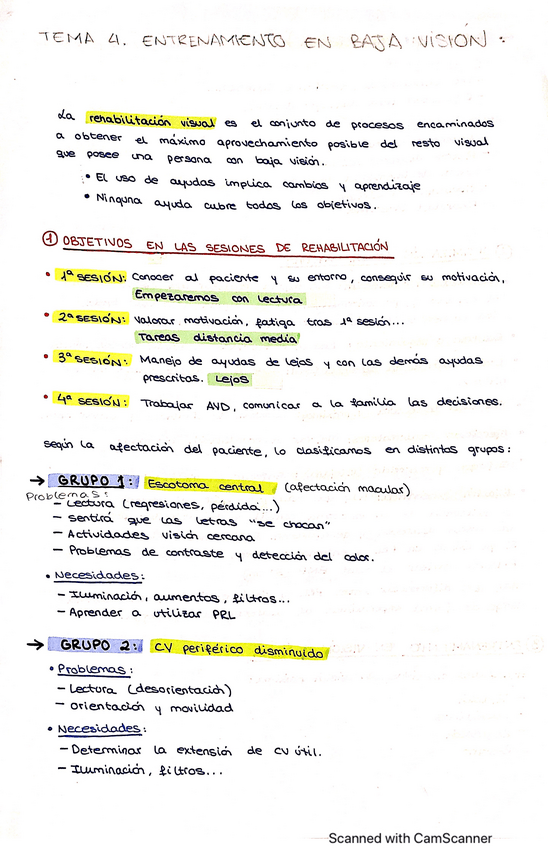 TEMA 4. ENTRENAMIENTO EN BAJA VISIÓN:
La rehabilitación visual es el conjunto de procesos encaminados
a obtener el máximo aprovechamiento posible del resto visual
que posee una persona con baja visión.
• El uso de ayudas implica cambios y aprendizaje
• Ninguna ayuda cubre todos los objetivos.
① OBJETIVOS EN LAS SESIONES DE REHABILITACIÓN
• 1ª SESIÓN: Conocer al paciente y su entorno, conseguir su motivación,
Empezaremos con lectura
• 2ª SESIÓN: Valorar motivación, fatiga tras 1ª sesión...
Tareas distancia media
• 3ª SESIÓN: Manejo de ayudas de lejos y con las demás ayudas
prescritas. Lejos
• 4ª SESIÓN: Trabajar AVD, comunicar a la familia las decisiones.
según la afectación del paciente, lo clasificamos en distintos grupos:
→ GRUPO 1: Escotoma central (afectación macular)
Problemas:
- Lectura (regresiones, pérdida...)
- sentirá que las letras "se chocan"
- Actividades visión cercana
- Problemas de contraste y detección del color.
• Necesidades:
- Iluminación, aumentos, filtros...
- Aprender a utilizar PRL
→ GRUPO 2: CV periférico disminuido
• Problemas:
- Lectura (desorientación)
- orientación y movilidad
• Necesidades:
- Determinar la extensión de CV útil.
- Iluminación, filtros...
Scanned with CamScanner